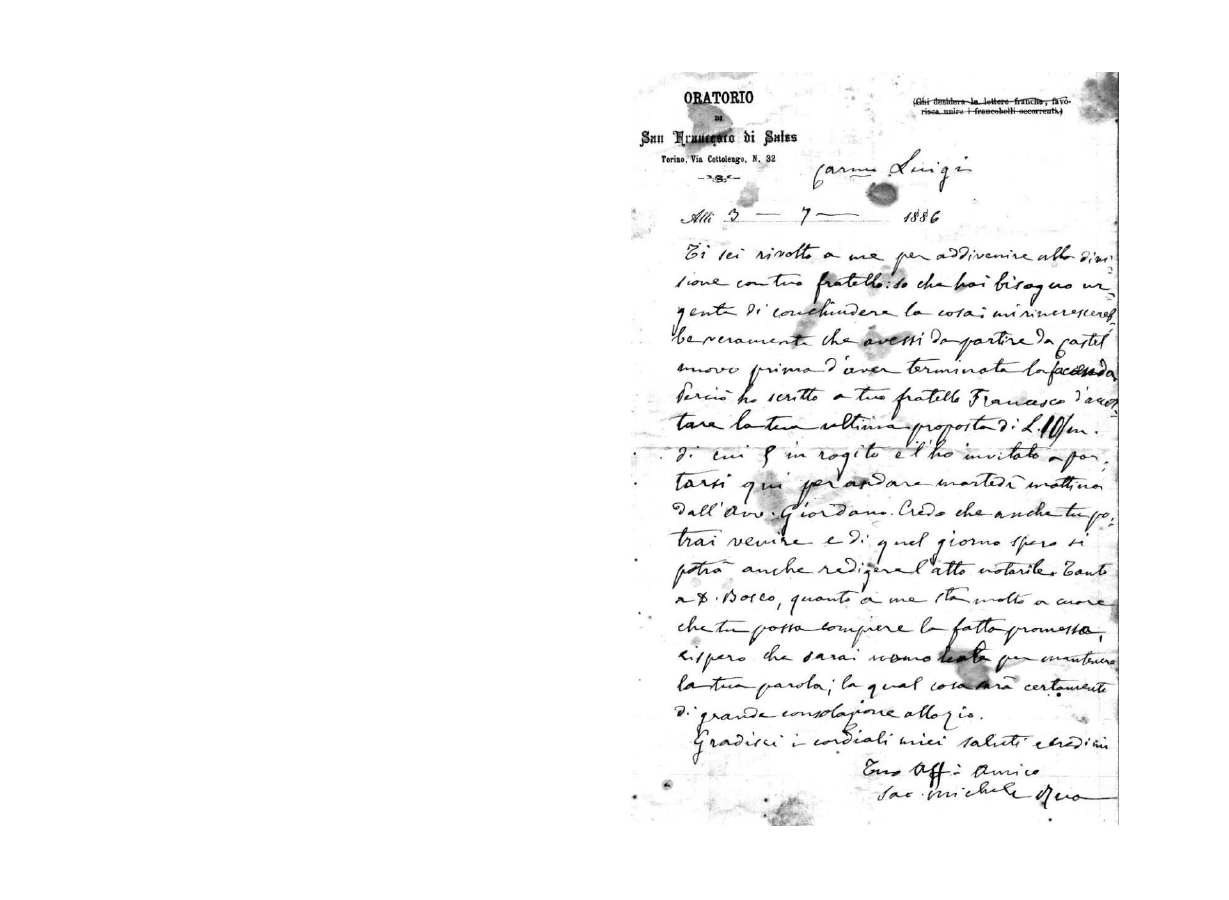 ORATORIO
DI
San Francesco di Sales
Torino, Via Cottolengo, N. 32
(Chi desidera le lettere franche, favo-
risca unire i francobolli occorrenti.)
Carmo Luigi
Alli 3 — 7 — 1886
Ti sei rivolto a me per addivenire alla divi-
sione con tuo fratello: so che hai bisogno ur-
gente di conchiudere la cosa; mi rincrescereb-
be veramente che avessi da partire da Castel
nuovo prima d'aver terminata la faccenda
Perciò ho scritto a tuo fratello Francesco d'accet-
tare la tua ultima proposta di L. 10/m.
di cui 5 in rogito e l'ho invitato a por-
tarsi qui per andare martedì mattina
dall'Avv. Giordano. Credo che anche tu po-
trai venire e di quel giorno spero si
potrà anche redigere l'atto notarile. Tanto
a D. Bosco, quanto a me sta molto a cuore
che tu possa compiere la fatta promessa,
e spero che sarai uomo per mantenere
la tua parola; la qual cosa sarà certamente
di grande consolazione allo zio.
Gradisci i cordiali miei saluti e credimi
Tuo Aff. Amico
Sac. Michele Rua